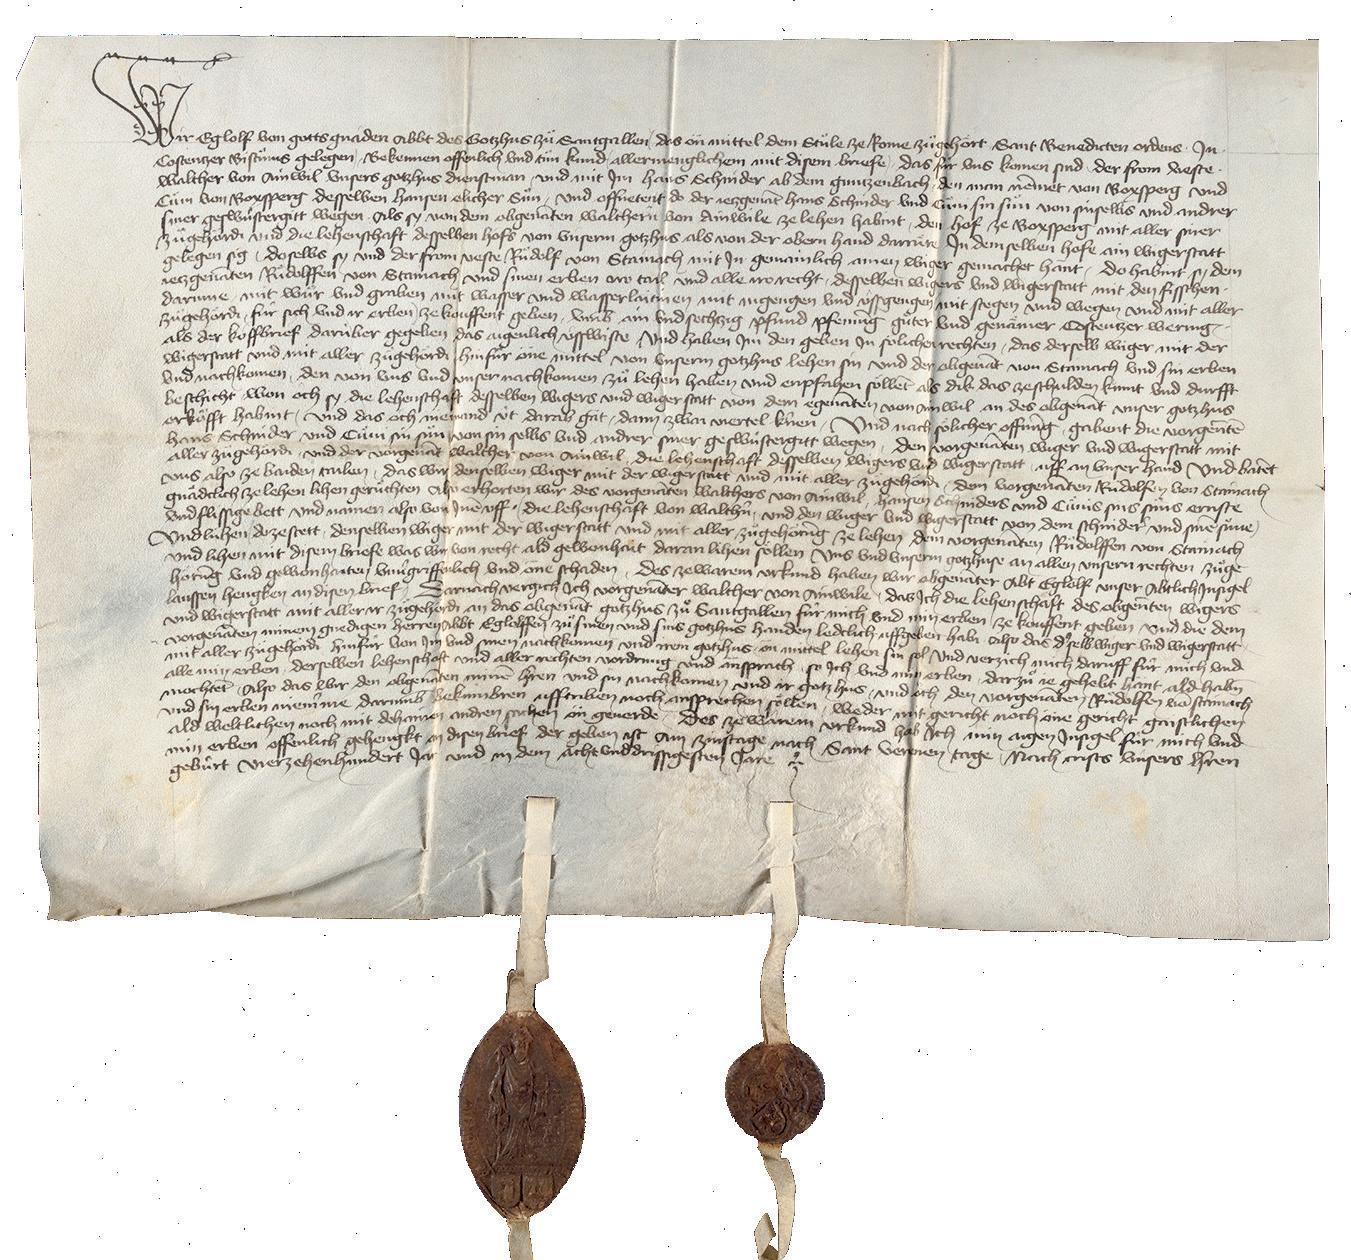 Wir Eglolf von gotts gnaden Abbt des Gotzhus zů Santgallen / das ön mittel dem Stůle ze Rome zůgehört Sant Benedicten ordens In
Costentzer Bistůms gelegen / Bekennen offenlich vnd tůn kund allermenglichem mit disem briefe / das für vns komen sind der from veste
Walther von Ainwil vnsers gotzhus dienstman / vnd mit Im Hans Schnider ab dem guntzenbach / den man nemmet von Boxsperg vnd
Cůni von Boxsperg desselben Hansen elicher Sůn / vnd offnetent do der ietzgenāt Hans Schnider vnd Cůni sin sůn von sinselbs vnd andrer
siner geschwüstergitt wegen / Als sy von dem obgenāten Walthern von Ainwile ze lehen habint / den hof ze Boxsperg mit aller siner
zůgehörd vnd die lehenschaft desselben hofs von vnserm gotzhus als von der obern hand darrüre / In demselben hofe ain wigerstatt
gelegen sig / doselbs sy vnd der from veste Růdolf von Stainach mit In gemainlich ainen wiger gemachet hant / Do habint sy dem
ietzgenāten Růdolffen von Stainach vnd sinen erben iro tail vnd alle iro recht / desselben wigers vnd wigerstatt mit den fisschen
darinne / mit wůr vnd graben mit wasser vnd wasserlaitinen mit ingengen vnd vssgengen mit stegen vnd wegen vnd mit aller
zůgehörd / für sich vnd ir erben / ze kouffent geben / vmb ain vnd sechtzig pfund pfenning gůter vnd genämer Costentzer wering
als der koffbrief darüber gegeben das aigenlich vsswiste / Vnd haben Im den geben In sölichen rechten / das derselb wiger mit der
wigerstatt vnd mit aller zůgehörd hinfür öne mittel von vnserm gotzhus lehen sin vnd der obgenāt von Stainach vnd sin erben
vnd nachkomen / den von vns vnd vnser nachkomen zů lehen haben vnd enpfahen söllēt als dik das ze schulden kunt vnd durfft
beschicht / won och sy die lehenschaft desselben wigers vnd wigerstatt von dem egenāten von Ainwil an des obgenāt vnser gotzhus
erköfft habint / vnd das och niemand nüt darab gāt / dann zwai viertel / Vnd nach sölicher offnung / gabent die vorgenāte
Hans Schnider / vnd Cůni sin sůn von sin selbs vnd andrer siner geschwüstergitt wegen / den vorgenāten wiger vnd wigerstatt mit
aller zůgehörd / vnd der vorgenāt Walther von Ainwil / die lehenschaft desselben wigers vnd wigerstatt / uff an vnser hand Vnd batēt
vns also ze baiden tailen / das wir denselben wiger mit der wigerstatt vnd mit aller zůgehörd / dem vorgenāten Růdolfen von Stainach
gnädclich ze lehen lihen gerůchten Also erhorten wir des vorgenāten Walthers von Ainwil / Hansen Schniders vnd Cůnis sins sůns ernste
vnd flissige bett vnd namen also von Ine vff / die lehenschaft von Walthn̄ / vnd den wiger vnd wigerstatt von dem Schnider / vnd sine sůne /
Vnd luhen do ze stett / denselben wiger mit der wigerstatt vnd mit aller zůgehörūg ze lehen / dem vorgenāten / Růdolffen von Stainach
vnd lihen mit disem briefe was wir von recht ald gewonhait daran lihen söllen Vns vnd vnserm gotzhuse an allen vnsern rechten zůge
hörūg vnd gewonhaiten vnuergriffenlich vnd one schaden / Des ze warem vrkund haben wir obgenāter Abt Eglolf vnser Abtlich Insigel
laussen hengken an disen brief / Darnach vergich Ich vorgenāter Walther von Ainwile / das Ich die lehenschaft des obgenāten wigers
vnd wigerstatt mit aller ir zůgehörd an das obgenāt gotzhus zů Santgallen für mich vnd min erben / ze kouffent geben / vnd die dem
vorgenāten minem gnedigen herren Abbt Eglolffen zů sinen vnd sins gotzhus handen ledclich uffgeben hab / Also das d'selb wiger vnd wigerstatt
mit aller zůgehörd hinfür von Im vnd sinen nachkomen vnd irem gotzhus / ön mittel lehen sin sol Vnd verzich mich daruff für mich vnd
alle min erben / derselben lehenschaft vnd aller rechten vordrung vnd ansprach / so Ich vnd min erben / darzů ie gehebt hant ald habn̄
mochtēt / Also das wir den obgenāten minē hren vnd sin nachkomen vnd ir gotzhus / vnd och den vorgenāten / Růdolfen vō Stainach
vnd sin erben niemme darumb bekumbren ufftriben noch ansprechen söllen / weder mit gericht noch öne gericht gaistlichen
ald weltlichen noch mit dehainen andren sachen ön geuerde / Des ze warem vrkund hab Ich min aigen Insigel für mich vnd
min erben offenlich gehengkt an disen brief der geben ist Am zinstage nach Sant Verenen tage / Nach cristi vnsers hren
gebůrt vierzehenhundert Jar vnd in dem acht vnd drissigesten Jare